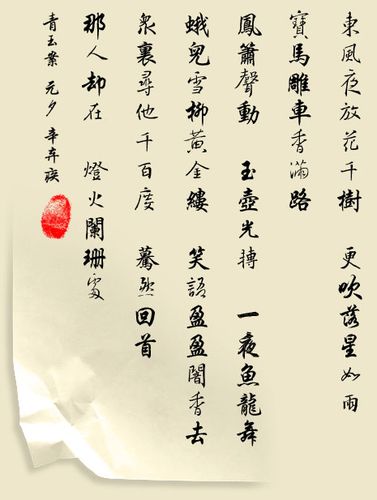 東風夜放花千樹 更吹落星如雨
寶馬雕車香滿路
鳳簫聲動 玉壺光轉 一夜魚龍舞
蛾兒雪柳黃金縷 笑語盈盈闇香去
衆裏尋他千百度 驀然回首
那人却在 燈火闌珊處
青玉案 元夕 辛弃疾